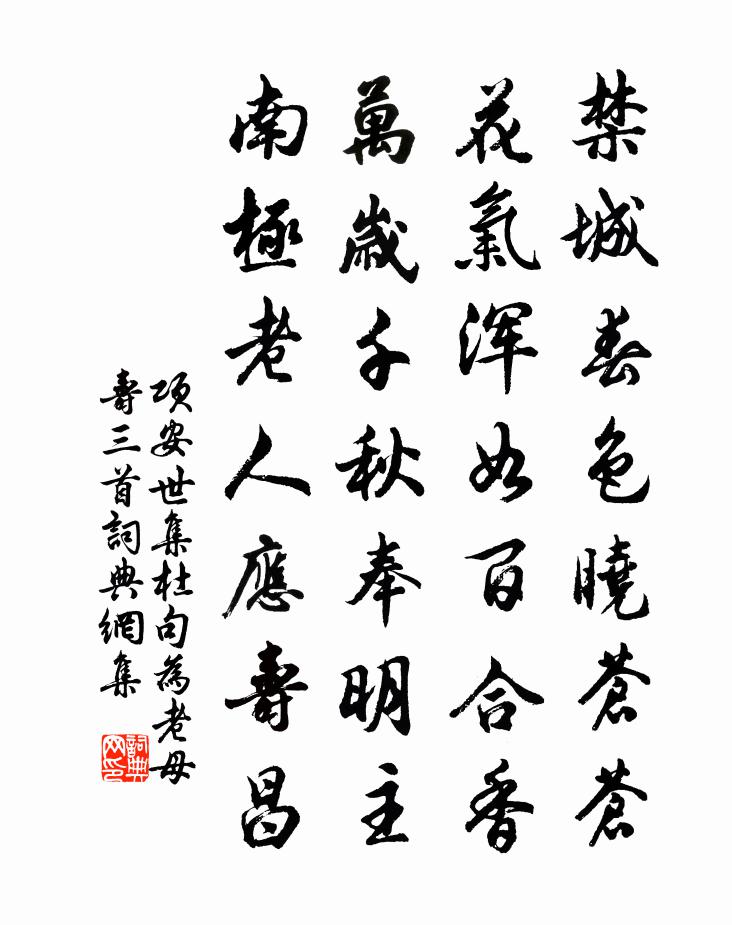 禁城春色曉蒼蒼
花氣浑如百合香
萬歲千秋奉明主
南極老人應壽昌
项安世集杜句為老母
壽三首詞典網集
詞典
网印